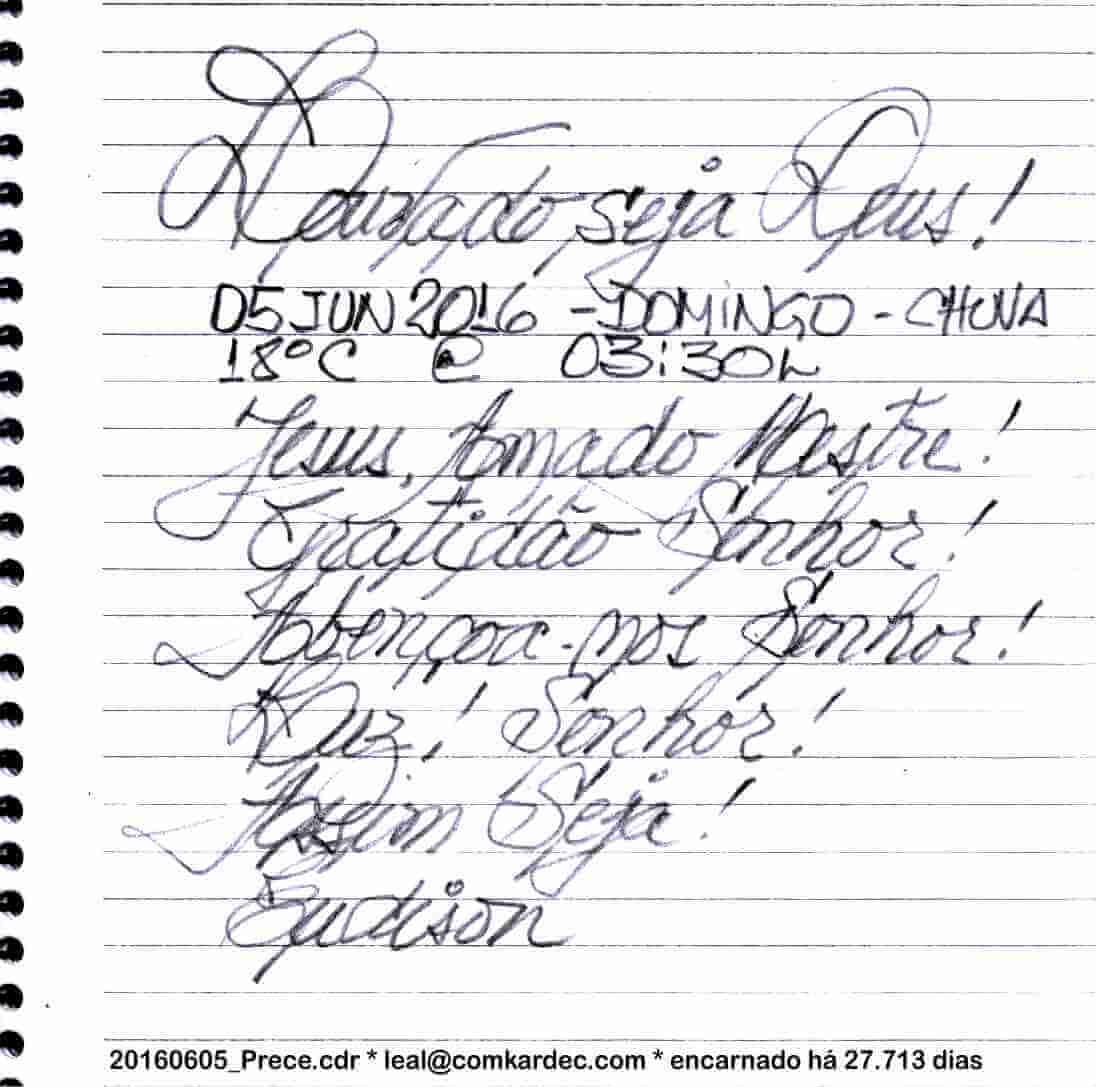 Louvado seja Deus!
05 JUN 2016 - DOMINGO - CHUVA
18°C @ 03:30h
Jesus, Amado Mestre!
Gratidão Senhor!
Abençoa-nos Senhor!
Luz! Senhor!
Assim Seja!
20160605_Prece.cdr * leal@comkardec.com * encarnado há 27.713 dias